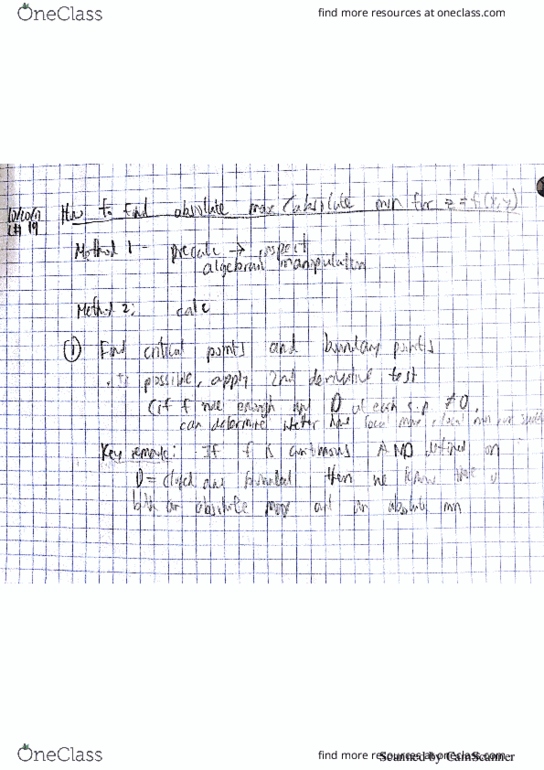 OneClass
find more resources at oneclass.com
L# 19
How to find absolute max/absolute min for z = f(x,y)
Method 1: precalc → inspect
algebraic manipulation
Method 2: calc
① Find critical points and boundary points
If possible, apply 2nd derivative test
(if f nice enough and D at each c.p ≠ 0,
can determine wether have local max, local min, or saddle
Key remark: If f is continuous AND defined on
D = closed and bounded then we know there is
both an absolute max and an absolute min
OneClass
find more resources at oneclass.com
Scanned by CamScanner